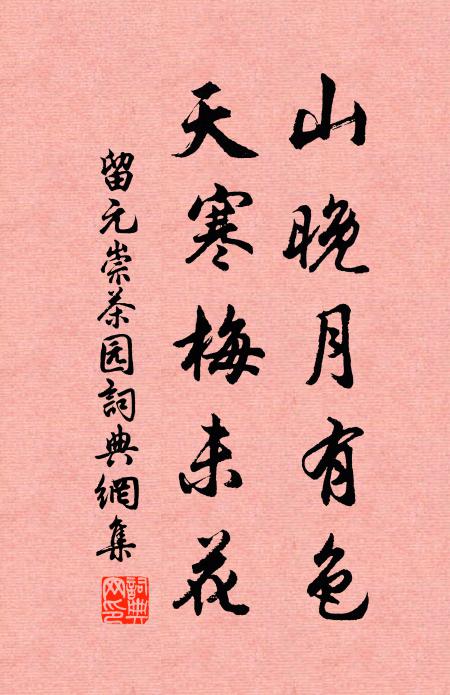 山晚月有色
天寒梅未花
留元崇茶园詞典網集
詞典网印